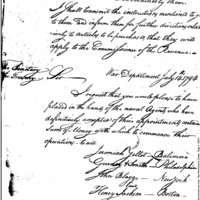 I shall transmit the estimates mentioned to you
to them and inform them for further directions relative
ively to articles to be purchased that they will
apply to the Commissioner of the Revenue.
The Secretary
of the Treasury
War Department July 12th 1794
Sir
I request that you would please to have
placed in the hands of the naval Agents who have
definitively accepted of their appointments certain
sums of money with which to commence their
operations: to wit.
Jeremiah Yellot Baltimore
Gurney & Smith Philadelphia
John Blagge New York
and
Henry Jackson Boston